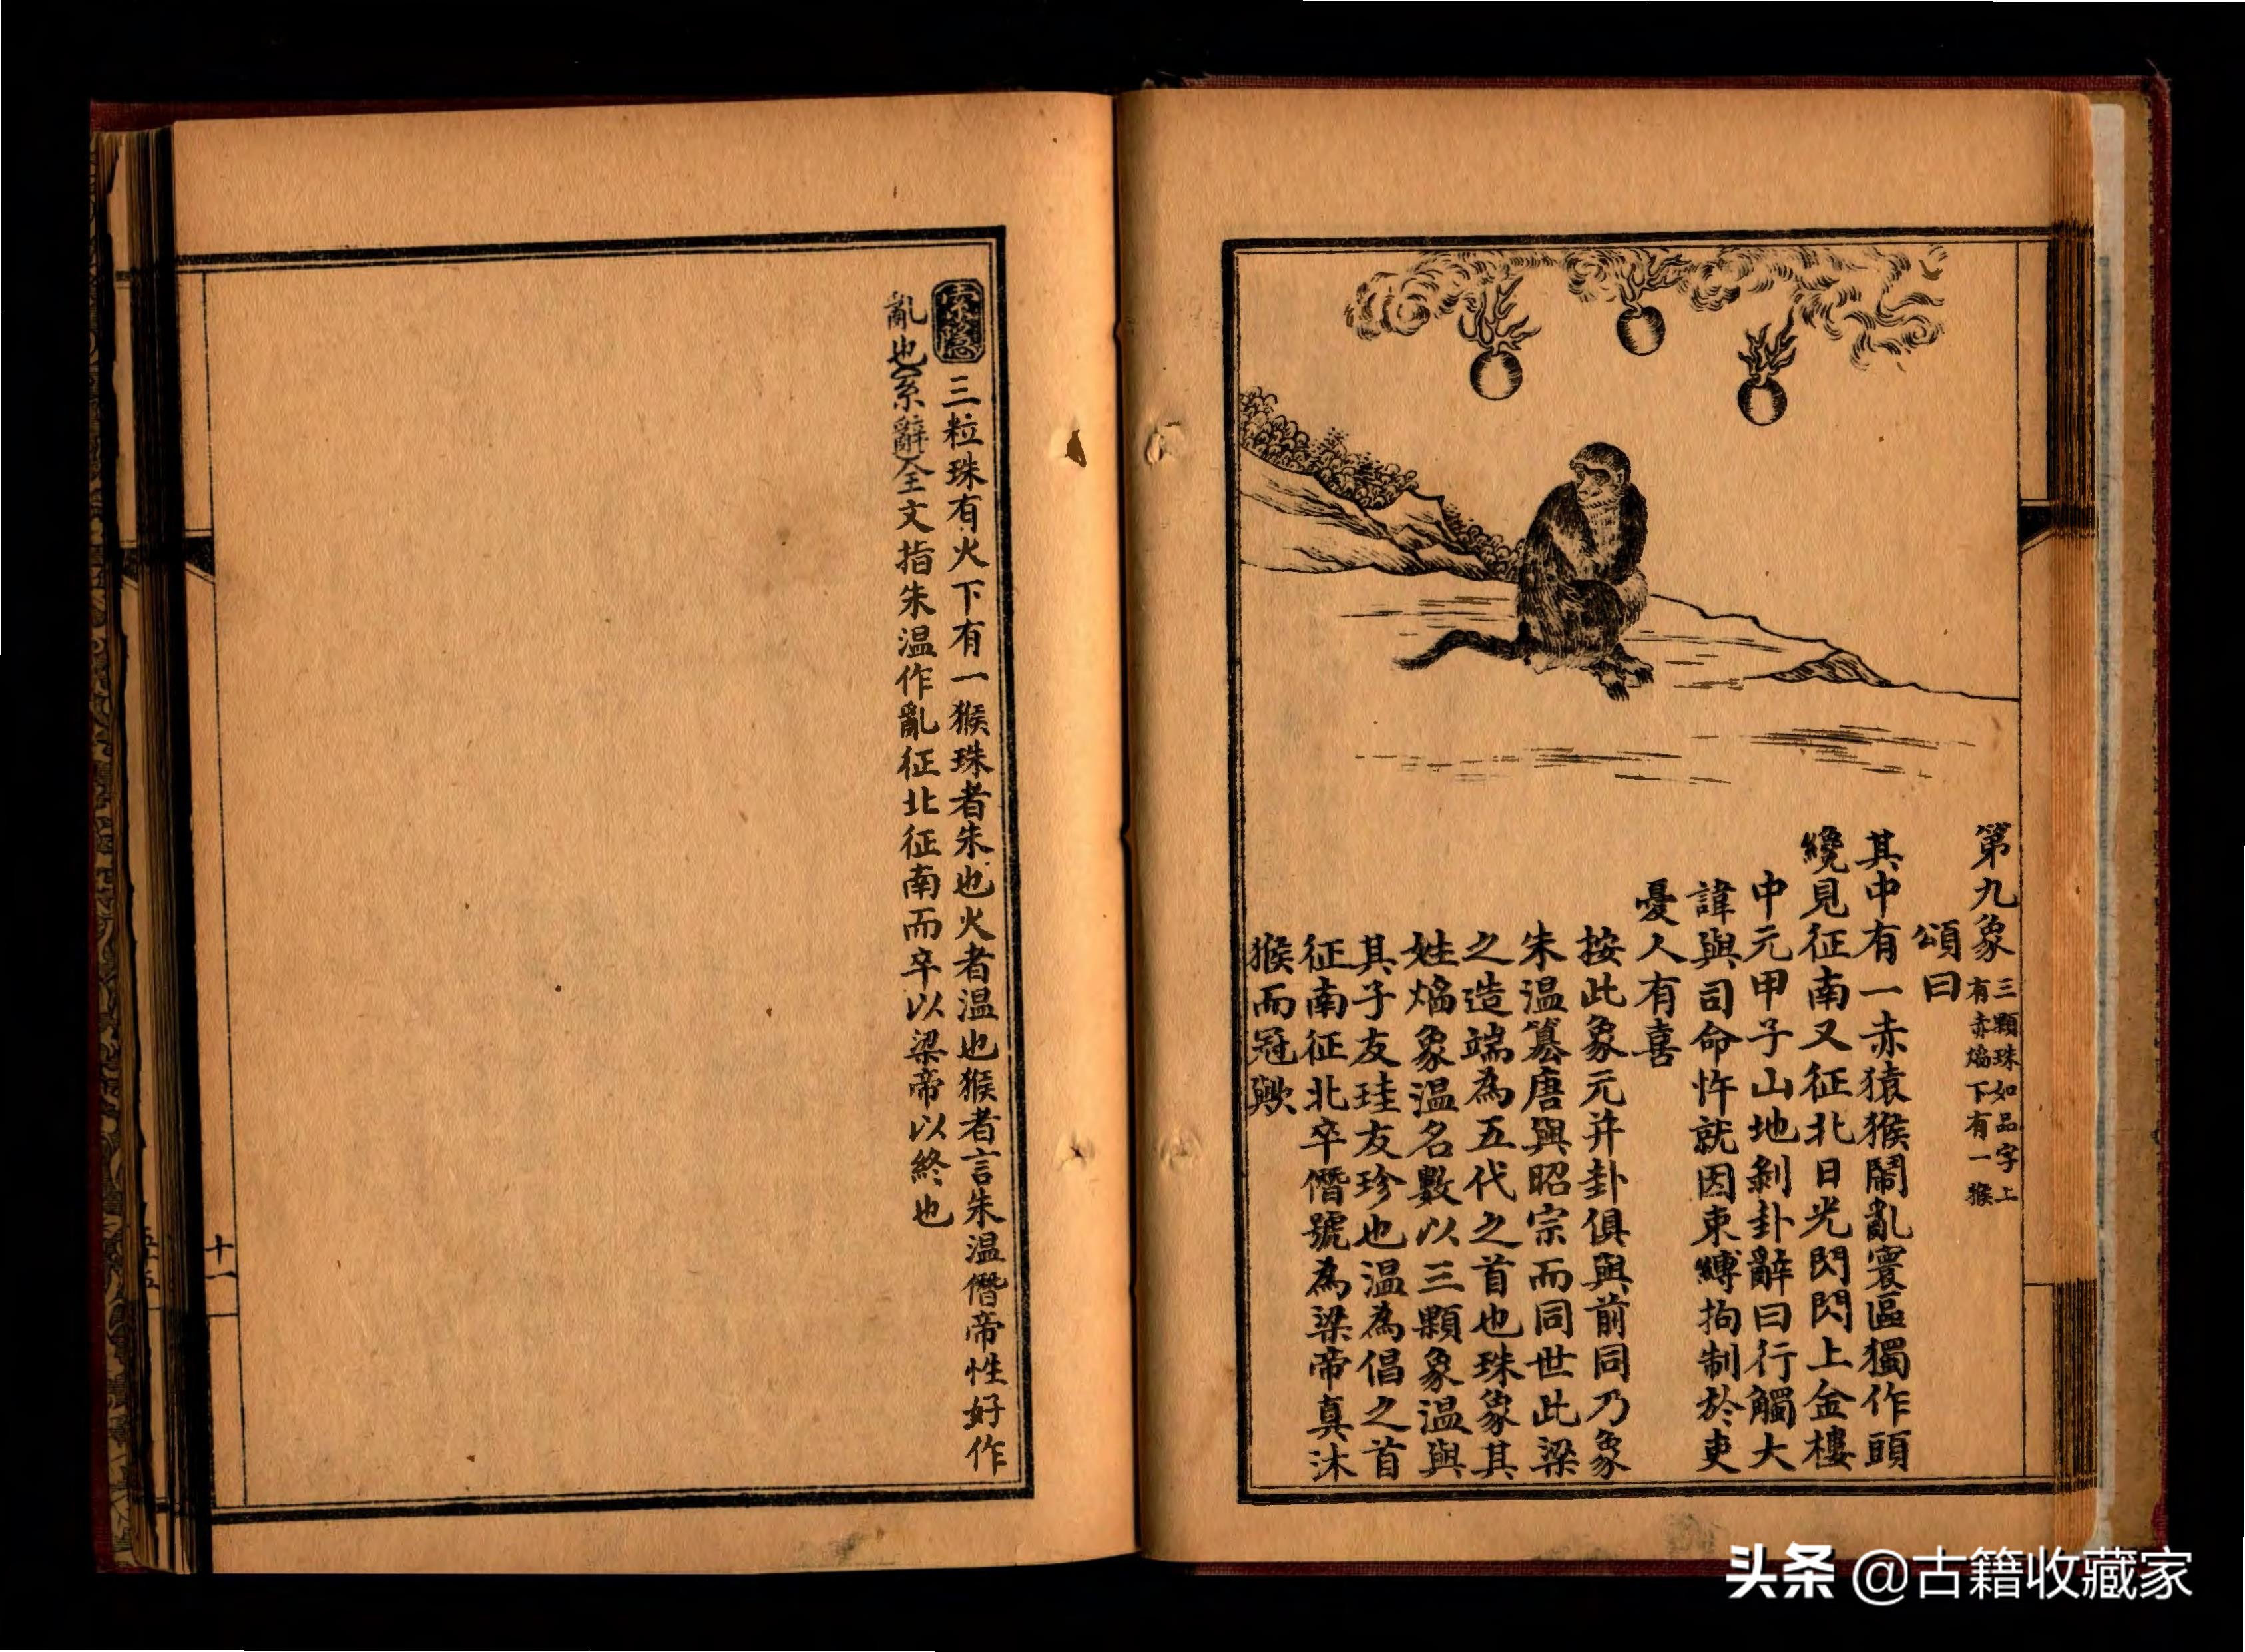 第九象
三顆珠如品字上
有赤焰下有一猴
頌曰
其中有一赤猿猴鬧亂寰區獨作頭
纔見征南又征北日光閃閃上金樓
中元甲子山地剝卦辭曰行觸大
諱與司命忤就因束縛拘制於吏
憂人有喜
按此象元并卦俱與前同乃象
朱溫篡唐與昭宗而同世此梁
之造端為五代之首也珠象其
姓焰象温名數以三顆象温與
其子友珪友珍也温為倡之首
征南征北卒僭號為梁帝真沐
猴而冠歟
三粒珠有火下有一猴珠者朱也火者温也猴者言朱温僭帝性好作
亂也(系辭)全文指朱温作亂征北征南而卒以梁帝以終也
十一
五十五
头条 @古籍收藏家